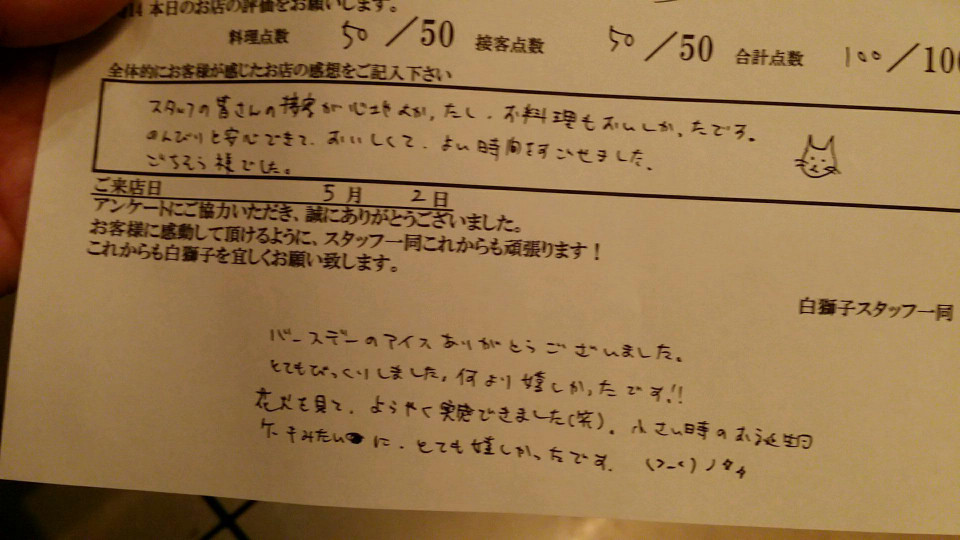 本日のお店の評価をお願いします。
料理点数 50/50 接客点数 50/50 合計点数 100/100
全体的にお客様が感じたお店の感想をご記入下さい
スタッフの皆さんの接客が心地よかったし、お料理もおいしかったです。
のんびりと安心できて、おいしくて、よい時間をすごせました。
ごちそう様でした。
ご来店日 5月 2日
アンケートにご協力いただき、誠にありがとうございました。
お客様に感動して頂けるように、スタッフ一同これからも頑張ります！
これからも白獅子を宜しくお願い致します。
白獅子スタッフ一同
バースデーのアイスありがとうございました。
とてもびっくりしました。何より嬉しかったです!!
花火を見て、ようやく実感できました(笑)。小さい時のお誕生日
ケーキみたいに、とても嬉しかったです。